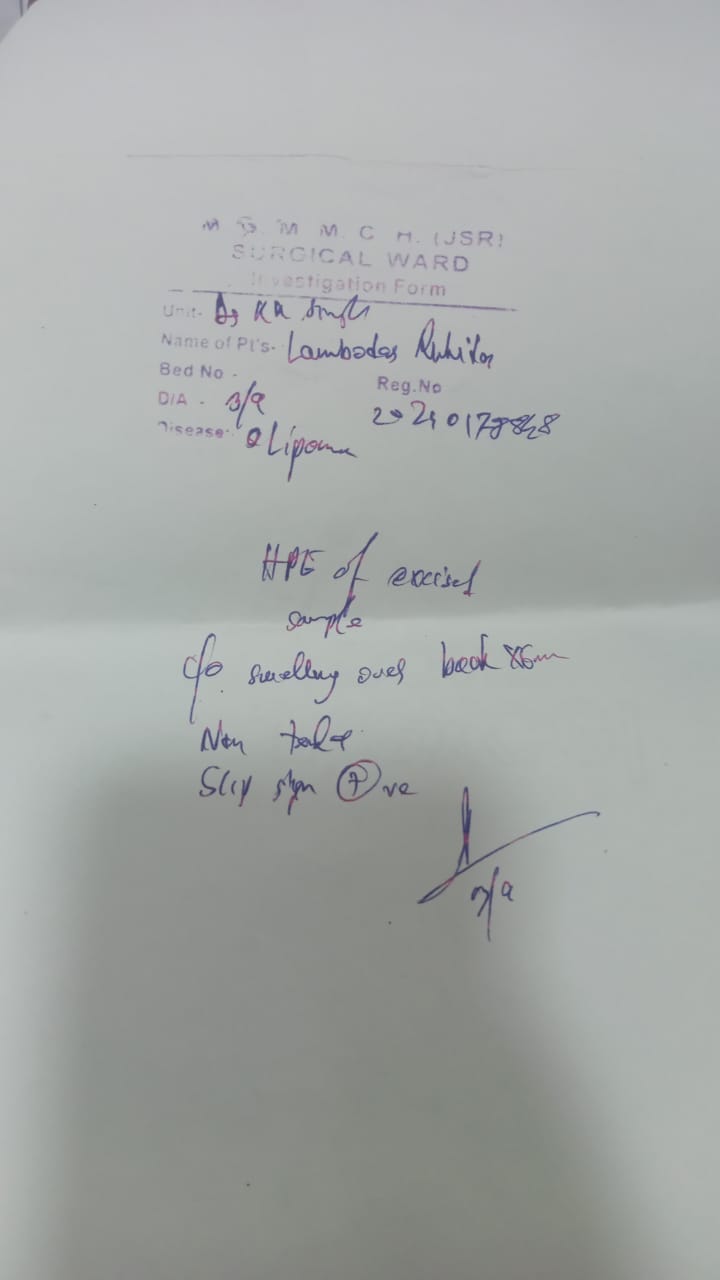 M. G. M M. C H. (JSR)
SURGICAL WARD
Investigation Form
Unit- Dr KK Singh
Name of Pt's- Lambodar
Bed No -
Reg.No
D/A - 3/9
Disease- Lipoma
HPE of excised
sample
c/o swelling over back
Non
Slip sign ⊕ve
3/9